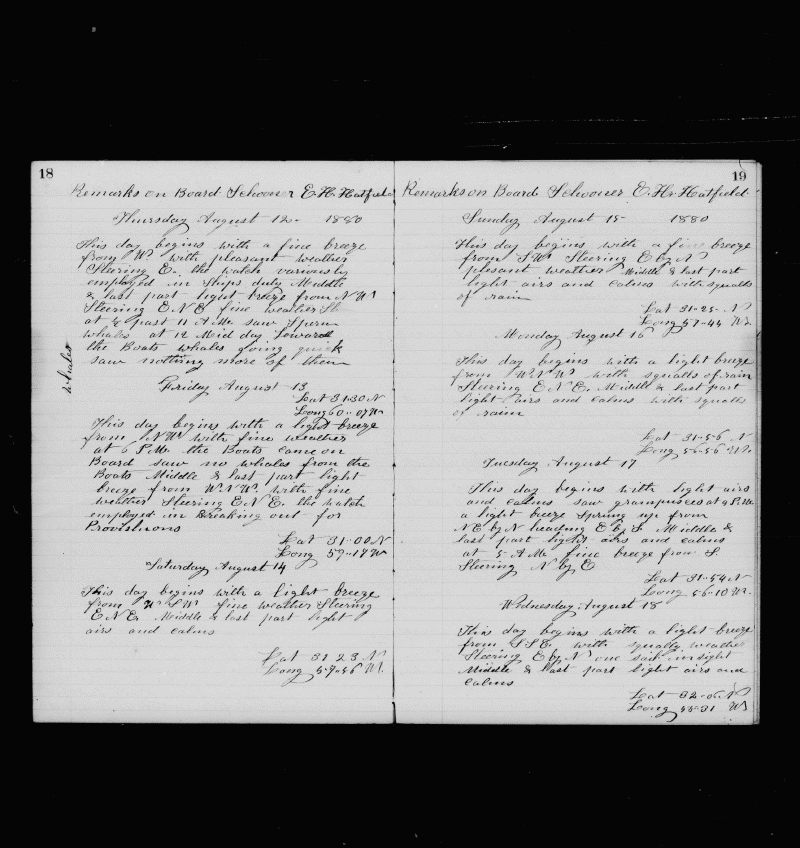 18
Remarks on Board Schooner E. H. Hatfield
Thursday August 12 - 1880
This day begins with a fine breeze
from W. with pleasant weather
Steering E. the watch variously
employed in Ships duty Meddle
& last part light breeze from N W
Steering E N E fine weather
at ½ past 11 A.M. saw Sperm
whales at 12 Meid day Lowered
the Boats whales going quick
saw nothing more of them
whales
Friday August 13
Lat 31-30 N
Long 60-07 W
This day begins with a light breeze
from N W. with fine weather
at 6 P.M. the Boats came on
Board saw no whales from the
Boats Middle & last part light
breeze from W N W. with fine
weather Steering E N E. the watch
employed in Breaking out for
Provishons
Lat 31-00 N
Long 59-18 W
Saturday August 14
This day begins with a light breeze
from W S W. fine weather Steering
E N E. Middle & last part light
airs and calms
Lat 31 23 N
Long 57-56 W.
19
Remarks on Board Schooner E. H. Hatfield
Sunday August 15 - 1880
This day begins with a fine breeze
from S W. Steering E by N
plesant weather Middle & last part
light airs and calms with squalls
of rain
Lat 31-25- N
Long 57-44 W.
Monday August 16
This day begins with a light breeze
from W N W. with squalls of rain
Steering E N E. Middle & last part
light airs and calms with squalls
of raim
Lat 31-56 N
Long 56-56 W.
Tuesday August 17
This day begins with light airs
and calms saw grampuses at 4 P.M.
a light breeze sprung up from
N E by N heading E by S. Middle &
last part light airs and calms
at 5 A.M. fine breeze from S.
Steering N by E
Lat 31-54 N
Long 56-10 W.
Wednesday August 18
This day begins with a light breeze
from S S E. with squally weather
Steering E by N one sail in sight
Middle & last part light airs and
calms
Lat 32-06 N
Long 55-31 W